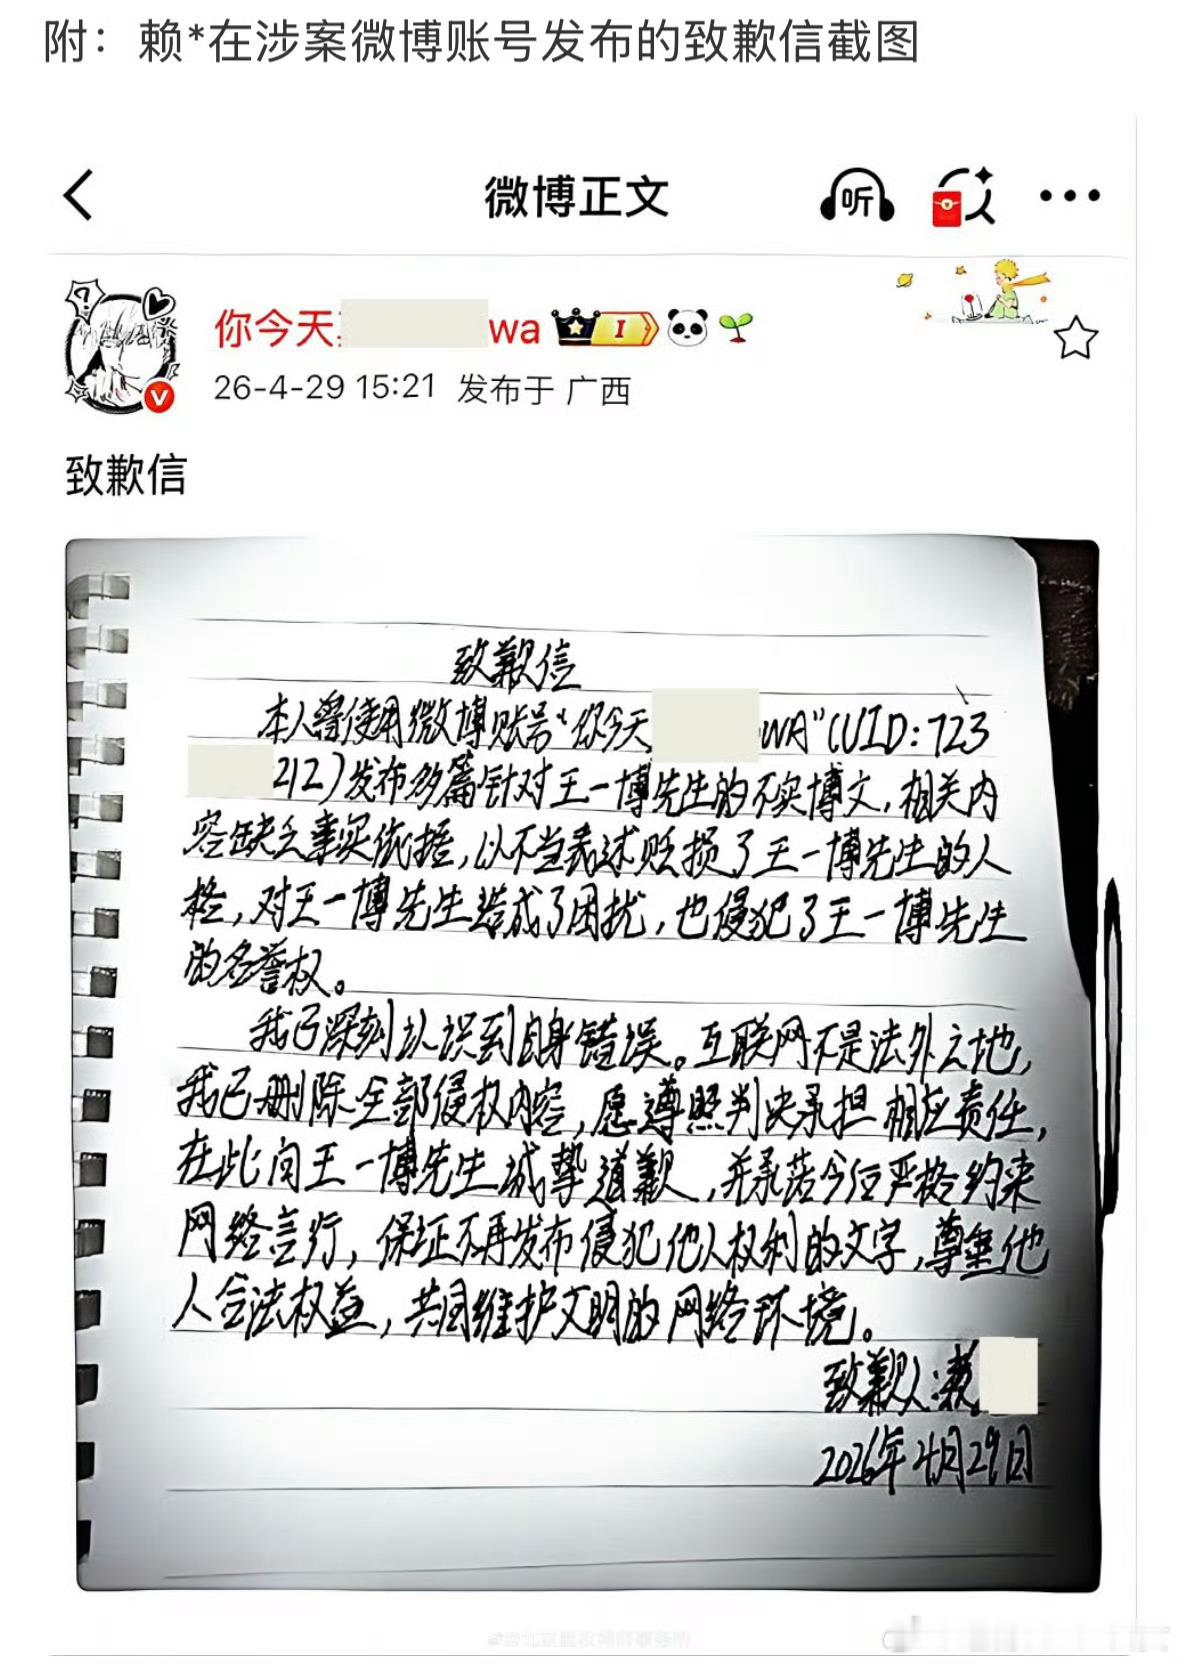 附：赖*在涉案微博账号发布的致歉信截图
微博正文
听
你今天 wa I
26-4-29 15:21 发布于 广西
致歉信
致歉信
本人曾使用微博账号“你今天 WA”(UID:723
212)发布多篇针对王一博先生的不实博文，相关内
容缺乏事实依据，以不当表述贬损了王一博先生的人
格，对王一博先生造成了困扰，也侵犯了王一博先生
的名誉权。
我已深刻认识到自身错误。互联网不是法外之地，
我已删除全部侵权内容，愿遵照判决承担相应责任，
在此向王一博先生诚挚道歉，并承诺今后严格约束
网络言行，保证不再发布侵犯他人权利的文字，尊重他
人合法权益，共同维护文明的网络环境。
致歉人：赖
2026年4月29日